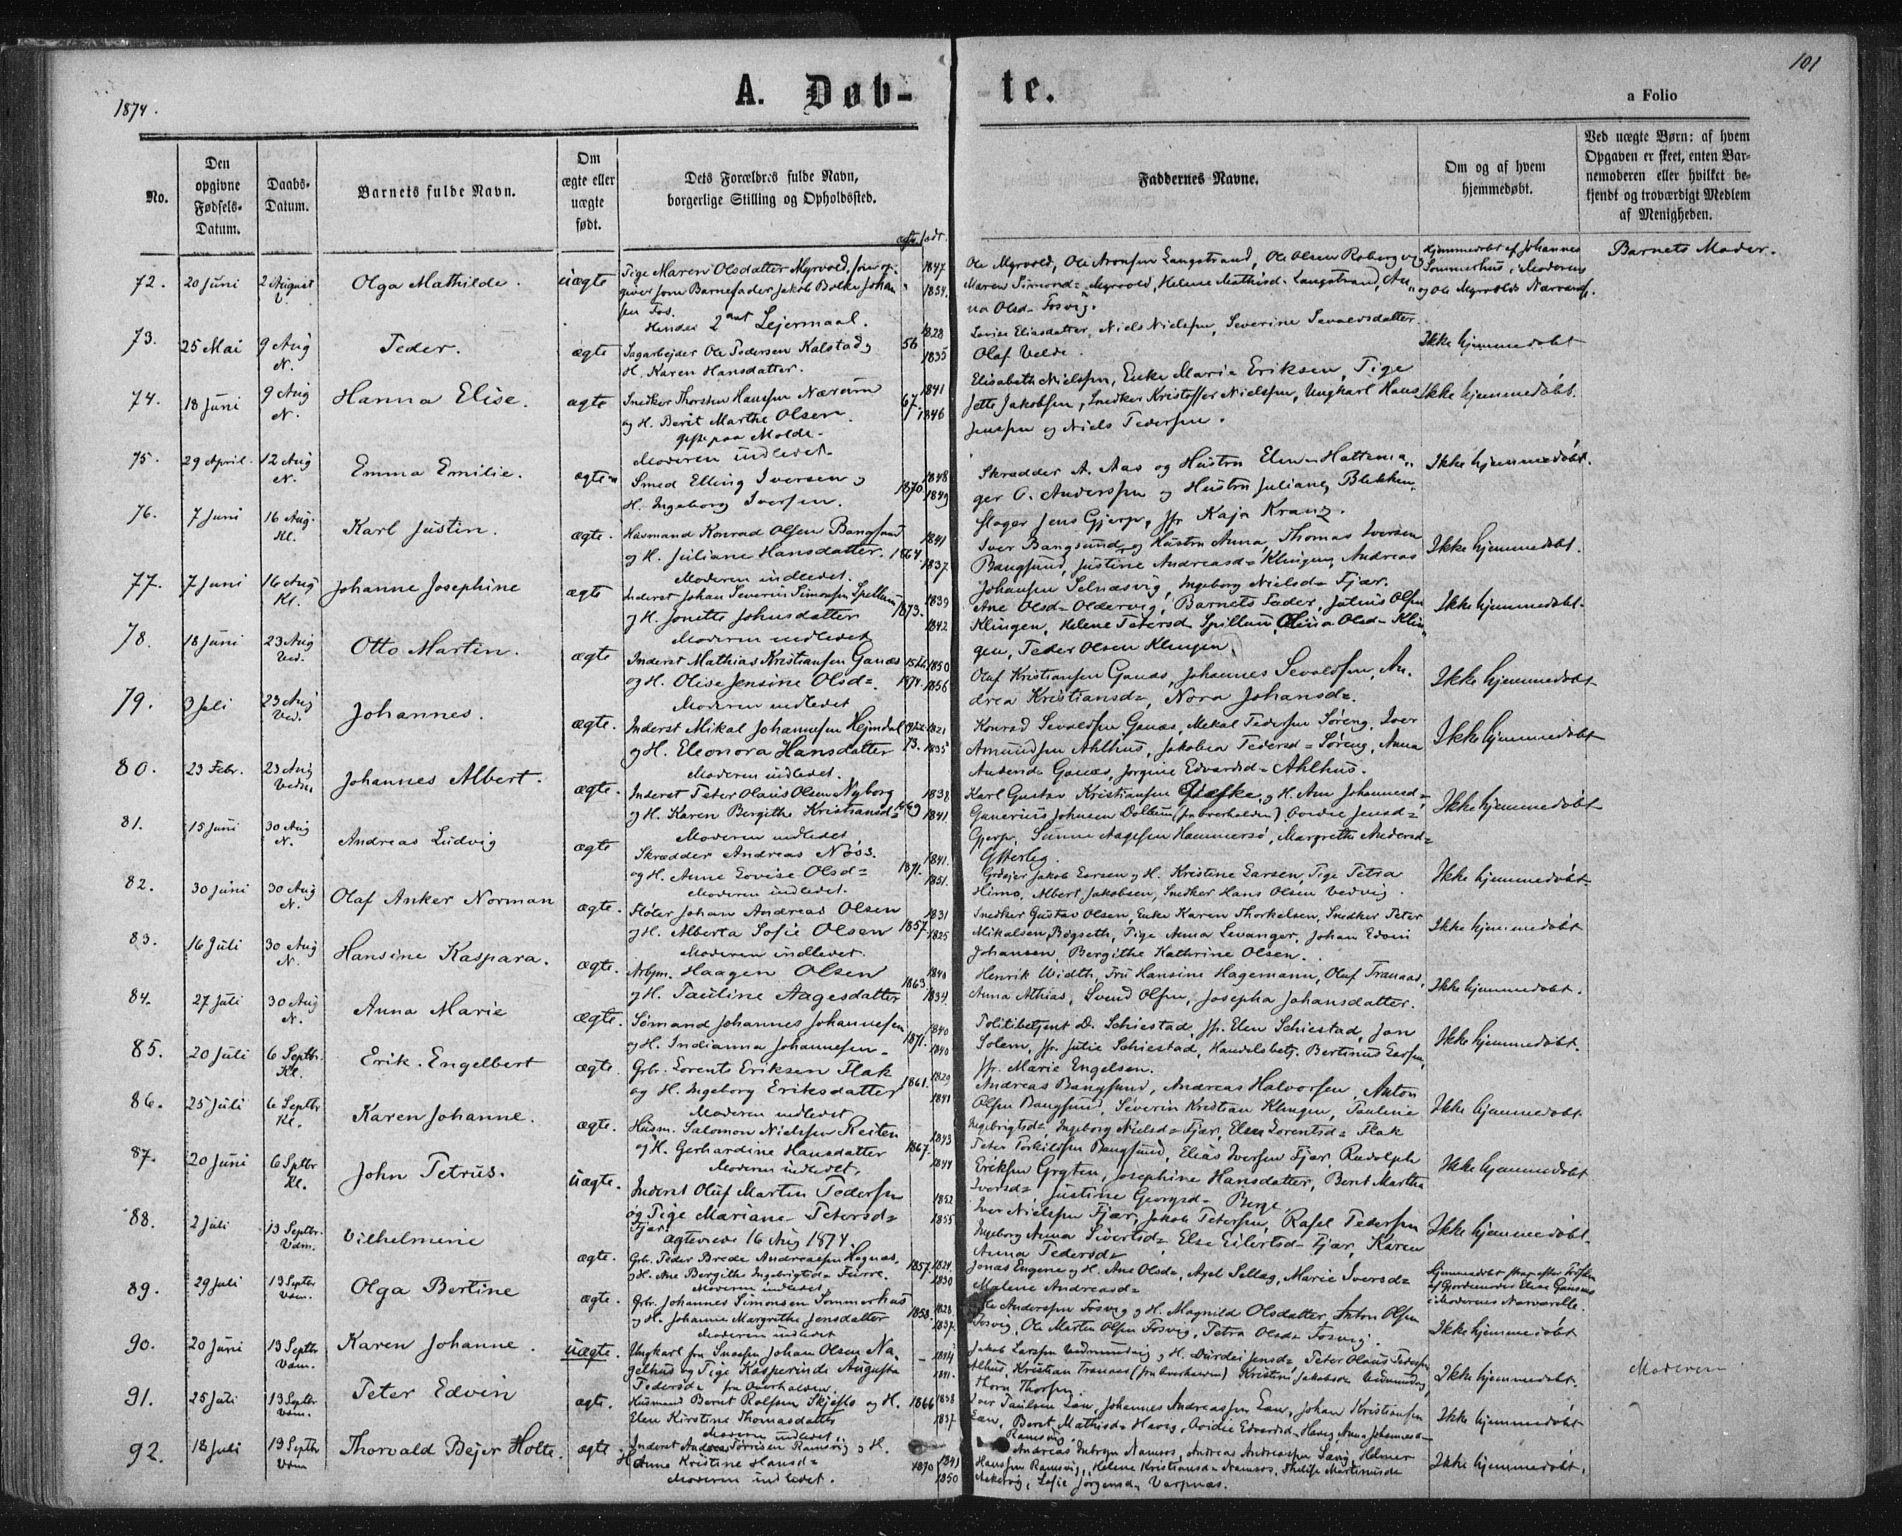 1874.
A. Døb-
te.
101
a Folio
No.
Den opgivne Fødsels-Datum.
Daabs-Datum.
Barnets fulde Navn.
Om ægte eller uægte født.
Dets Forældres fulde Navn, borgerlige Stilling og Opholdssted.
Faddernes Navne.
Om og af hvem hjemmedøbt.
Ved uægte Børn: af hvem Opgaven er skeet, enten Barnemoderen eller hvilket bekjendt og troværdigt Medlem af Menigheden.
72. 20 Juni 2 August Olga Mathilde. uægte Pige Maren Olsdatter Myrvold, som op-
giver som Barnefader Jakob Bolke Johan-
sen Fos. 1847 1854.
Hendes 2det Lejermaal.
Ole Myrvold, Ole Aronsen Langstrand, Ole Olsen Roberg og
Maren Simonsd= Myrvold, Helene Mathisd= Langstrand, An-
na Olsd= Fosvig.
Hjemmedøbt af Johannes
Sommerhus i Moderens
og Ole Myrvolds Nærværelse.
Barnets Moder.
73. 25 Mai 9 Aug N. Peder. ægte Sagarbejder Ole Pedersen Kalstad og
H. Karen Hansdatter. 56 1828 1835
Lovise Eliasdatter, Niels Nielsen, Severine Sevaldsdatter
Olaf Velde.
Ikke hjemmedøbt
74. 18 Juni 9 Aug N. Hanna Elise. ægte Snedker Thorsten Hansen Nærum
og H. Berit Marthe Olsen. 67. 1841 1846
gifte paa Molde.
Moderen indledet.
Elisabeth Nielsen, Enke Marie Eriksen, Pige
Jette Jakobsen, Snedker Kristoffer Nielsen, Ungkarl Hans
Jensen og Niels Pedersen.
Ikke hjemmedøbt.
75. 29 April. 12 Aug N. Emma Emilie. ægte Smed Elling Iversen og
H. Ingeborg Iversen. 1870 1848 1849
Skrædder A. Aas og Hustru Elen. Hattema-
ger O. Andersen og Hustru Juliane, Blikken-
slager Jens Gjerp, Jfr Kaja Kranz.
Ikke hjemmedøbt.
76. 7 Juni 16 Aug. Kl. Karl Justin. ægte. Husmand Konrad Olsen Bangsund
og H. Juliane Hansdatter. 1864. 1841 1837.
Moderen indledet.
Iver Bangsund og Hustru Anna, Thomas Iversen
Bangsund, Justine Andreasd= Klingen, Andreas
Johansen Selnæsvig, Ingeborg Nielsd= Fjær.
Ikke hjemmedøbt.
77. 7 Juni 16 Aug Kl. Johanne Josephine ægte Inderst Johan Severin Simonsen Spillum
og H. Jonette Johnsdatter 1873. 1839 1842
Moderen indledet
Ane Olsd= Oldervig, Barnets Fader, Julius Olsen
Klingen, Helene Petersd= Spillum, Olina Olsd= Klin-
gen, Peder Olsen Klingen
Ikke hjemmedøbt.
78. 18 Juni 23 Aug Ved. Otto Martin. ægte Inderst Mathias Kristiansen Ganæs
og H. Olise Jensine Olsd=. 1874. 1850 1856
Moderen indledet
Olaf Kristiansen Ganæs, Johannes Sevaldsen, An-
drea Kristiansd=, Nora Johansd=.
Ikke hjemmedøbt
79. 3 Juli 23 Aug Ved. Johannes. ægte. Inderst Mikal Johannesen Hejmdal
og H. Eleonora Hansdatter 73. 1821 1835
Moderen indledet.
Konrad Sevaldsen Ganæs, Mekal Pedersen Søreng, Iver
Amundsen Ahlhus, Jakobea Pedersd= Søreng, Anna
Andersd= Ganæs, Jørgine Edvardsd= Ahlhus.
Ikke hjemmedøbt
80. 23 Febr. 23 Aug Vedm Johannes Albert. ægte. Inderst Peter Olaus Olsen Nyborg
og H. Karen Bergithe Kristiansd= 69 1838 1841
Moderen indledet.
Karl Gustav Kristiansen Giæske og H. Ane Johannesd=
Ganerius Johnsen Dolum, (fra Overhalden) Ovidie Jensd=
Gjerp, Sunne Aagesen Hammersø, Margrethe Andersd=
Ytterleg.
Ikke hjemmedøbt
81. 15 Juni 30 Aug N. Andreas Ludvig ægte Skrædder Andreas Nøss.
og H. Anne Lovise Olsd= 1871. 1841. 1851.
Moderen indledet.
Grdejer Jakob Larsen og H. Kristine Larsen, Pige Petra
Himo, Albert Jakobsen, Snedker Hans Olsen Vedvig.
Ikke hjemmedøbt
82. 30 Juni 30 Aug N. Olaf Anker Norman ægte. Fløter Johan Andreas Olsen
og H. Alberta Sofie Olsen 1857. 1831 1825
Moderen indledet.
Snedker Gustav Olsen, Enke Karen Thorkelsen, Snedker Peter
Mikalsen Bøgseth, Pige Anna Levanger, Johan Edvin
Johansen, Bergithe Kathrine Olsen.
Ikke hjemmedøbt
83. 16 Juli 30 Aug N. Hansine Kaspara. ægte. Arbjm. Haagen Olsen
og H. Pauline Aagesdatter 1863. 1840 1834
Henrik Width, Fru Hansine Hagemann, Olaf Tranaas,
Anna Athias, Svend Olsen, Josepha Johansdatter.
Ikke hjemmedøbt.
84. 27 Juli 30 Aug N. Anna Marie ægte. Sømand Johannes Johannesen
og H. Indianna Johannesen. 1871. 1840 1840
Politibetjent D. Schiestad, Jfr. Elen Schiestad, Jon
Solem, Jfr. Julie Schiestad, Handelsbetj. Bertinus Larsen,
Jfr. Marie Engelsen.
Ikke hjemmedøbt.
85. 20 Juli 6 Septbr. Kl. Erik. Engelbert ægte. Grbr. Lorents Eriksen Flak
og H. Ingeborg Eriksdatter 1861. 1829 1841
Moderen indledet
Andreas Bangsund, Andreas Halvorsen, Anton
Olsen Bangsund, Severin Kristian Klingen, Pauline
Ingebrigtsd= Ingeborg Nielsd= Fjær, Elen Lorentsd= Flak
Ikke hjemmedøbt
86. 25 Juli 6 Septbr Kl. Karen Johanne. ægte. Husm. Salomon Nielsen Reiten
og H. Gerhardine Hansdatter 1867. 1843 1844
Moderen indledet.
Peter Torkildsen Bangsund, Elias Iversen Fjær, Rudolph
Eriksen Gryten, Josephine Hansdatter, Berit Martha
Iversd= Justine Georgsd= Berge
Ikke hjemmedøbt
87. 20 Juni 6 Sptbr Kl. John Petrus. uægte. Inderst Oluf Martin Pedersen
og Pige Mariane Petersd=
Fjær. ægteviede 16 Aug 1874. 1852 1855
Iver Nielsen Fjær, Jakob Petersen, Rasel Pedersen
Ingeborg Anna Sivertsd= Else Eilertsd= Fjær, Karen
Anna Pedersd=
Ikke hjemmedøbt.
88. 2 Juli 13 Septbr. Vdm. Vilhelmine ægte. Grbr. Peder Brede Andreassen Høgnæs
og H. Ane Bergithe Ingebrigtsd= Furre. 1857. 1824. 1830
Moderen indledet.
Jonas Eugene og H. Ane Olsd=, Axel Sellæg, Marie Iversd=
Malene Andreasd=
Hjemmedøbt strax efter Fødslen
af Gjordemoder Elise Ganæs
i Moderens Nærværelse.
89. 29 Juli 13 Septbr Vdm. Olga Bertine ægte. Grbr. Johannes Simonsen Sommerhus
og H. Johanne Margrethe Jensdatter 1858. 1828. 1837.
Moderen indledet
Ole Andersen Fosvig og H. Magnild Olsdatter, Anton Olsen
Fosvig, Ole Martin Olsen Fosvig, Petra Olsd= Fosvig.
Ikke hjemmedøbt
90. 20 Juni 13 Septbr Vdm. Karen Johanne. uægte. Ungkarl fra Snaasen Johan Olsen Na-
gelhus og Pige Kasperinde Augusta
Pedersd= fra Overhalden. 1841.
Jakob Larsen Vedmundvig og H. Durdei Jensd= Peter Olaus Pedersen
Alhus, Kristian Tranaas (fra Overhalden) Kristine Jakobsd= Vedmundvig,
Thorn Thorsen.
Ikke hjemmedøbt.
Moderen
91. 25 Juli 13 Septbr Vdm. Peter Edvin ægte. Husmand Bernt Rolfsen Skjefls og H.
Elen Kirstine Thomasdatter 1866 1838 1837.
Moderen indledet.
Iver Paulsen Lan, Johannes Andreassen Lan, Johan Kristiansen
Lan, Berit Mathisd= Havig, Ovidie Edvardsd= Havig, Anna Johannesd=
Ramsvig
Ikke hjemmedøbt
92. 18 Juli 13 Septbr Vdm Thorvald Bejer Holte. ægte. Inderst Andreas Tørrisen Ramsvig og H.
Anne Kristine Hansd= 1870 1843 1850
Moderen indledet.
Andreas Ambrosen Namsos, Andreas Andreassen Savig, Helmer
Hansen Ramsvig, Helene Kristiansd= Namsos, Thilise Martinusd=
Aakervig, Sofie Jørgensd= Varpnæs.
Ikke hjemmedøbt.